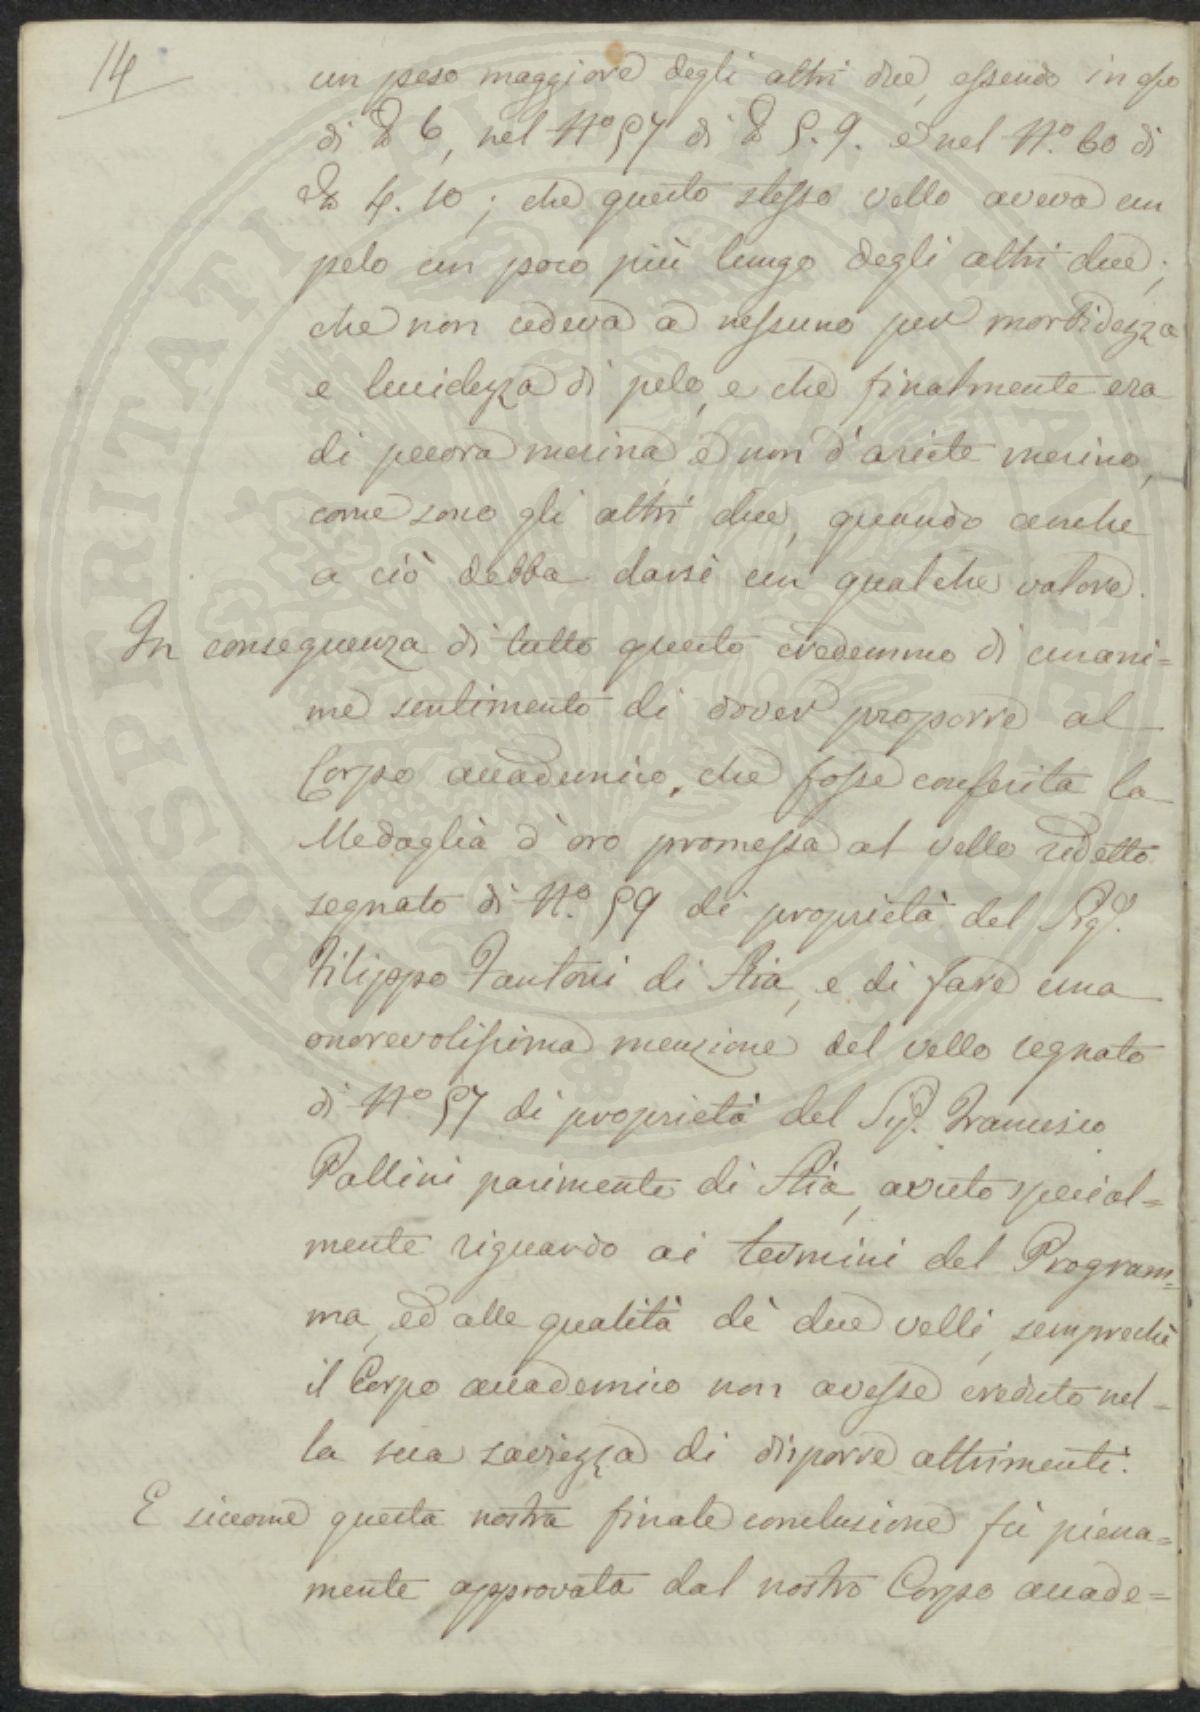 14
un peso maggiore degli altri due, essendo in esso
di ℔ 6, nel N.º 57 di ℔ 5. 9. e nel N.º 60 di
℔ 4. 10; che questo stesso vello aveva un
pelo un poco più lungo degli altri due;
che non cedeva a nessuno per morbidezza
e lucidezza di pelo, e che finalmente era
di pecora merina e non d'ariete merino,
come sono gli altri due, quando anche
a ciò debba darsi un qualche valore.
In conseguenza di tutto questo credemmo di unani=
me sentimento di dover proporre al
Corpo accademico, che fosse conferita la
Medaglia d'oro promessa al vello sudetto
segnato di N.º 59 di proprietà del Sig.
Filippo Fantoni di Stia, e di fare una
onorevolissima menzione del vello segnato
di N.º 57 di proprietà del Sig. Francesco
Pallini parimente di Stia, avuto special=
mente riguardo ai termini del Program=
ma, ed alle qualità dè due velli, sempreche
il Corpo accademico non avesse creduto nel=
la sua saviezza di disporre altrimenti.
E siccome questa nostra finale conclusione fù piena=
mente approvata dal nostro Corpo accade=
PROSPERITATI PUBLICAE AUGENDAE